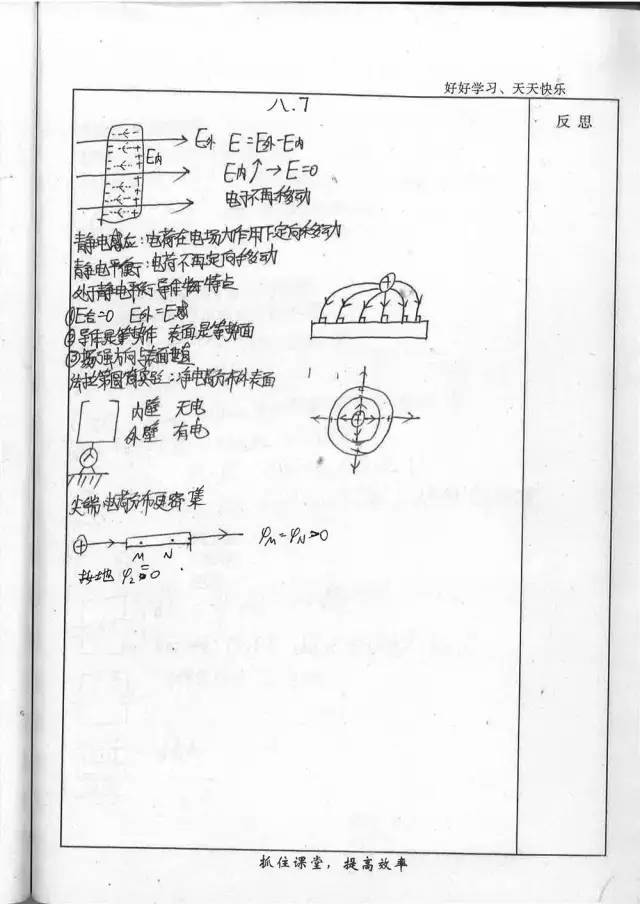 好好学习、天天快乐
八.7
反思
E外 E=E外-E内
E内
E内↑→E=0
电子不再移动
静电感应:电荷在电场力作用下定向移动
静电平衡:电荷不再定向移动
处于静电平衡导体特点
①E合=0 E外=E感
②导体是等势体 表面是等势面
③场强方向与表面垂直
法拉第圆筒实验:净电荷分布外表面
内壁 无电
外壁 有电
尖端电荷分布更密集
M N φM=φN>0
接地 φ=0
抓住课堂,提高效率